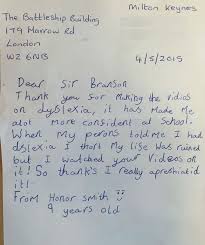 Milton Keynes
The Battleship Building
179 Harrow Rd
London
W2 6NB
4/5/2015
Dear Sir Branson
Thank you for making the vidios
on dyslexia, it has made me
alot more confident at school.
When my perons told me I had
dslexia I thort my life was ruined
but I watched your videos on
it! So thank's I really apreshiatid
it!
From Honor Smith
9 years old